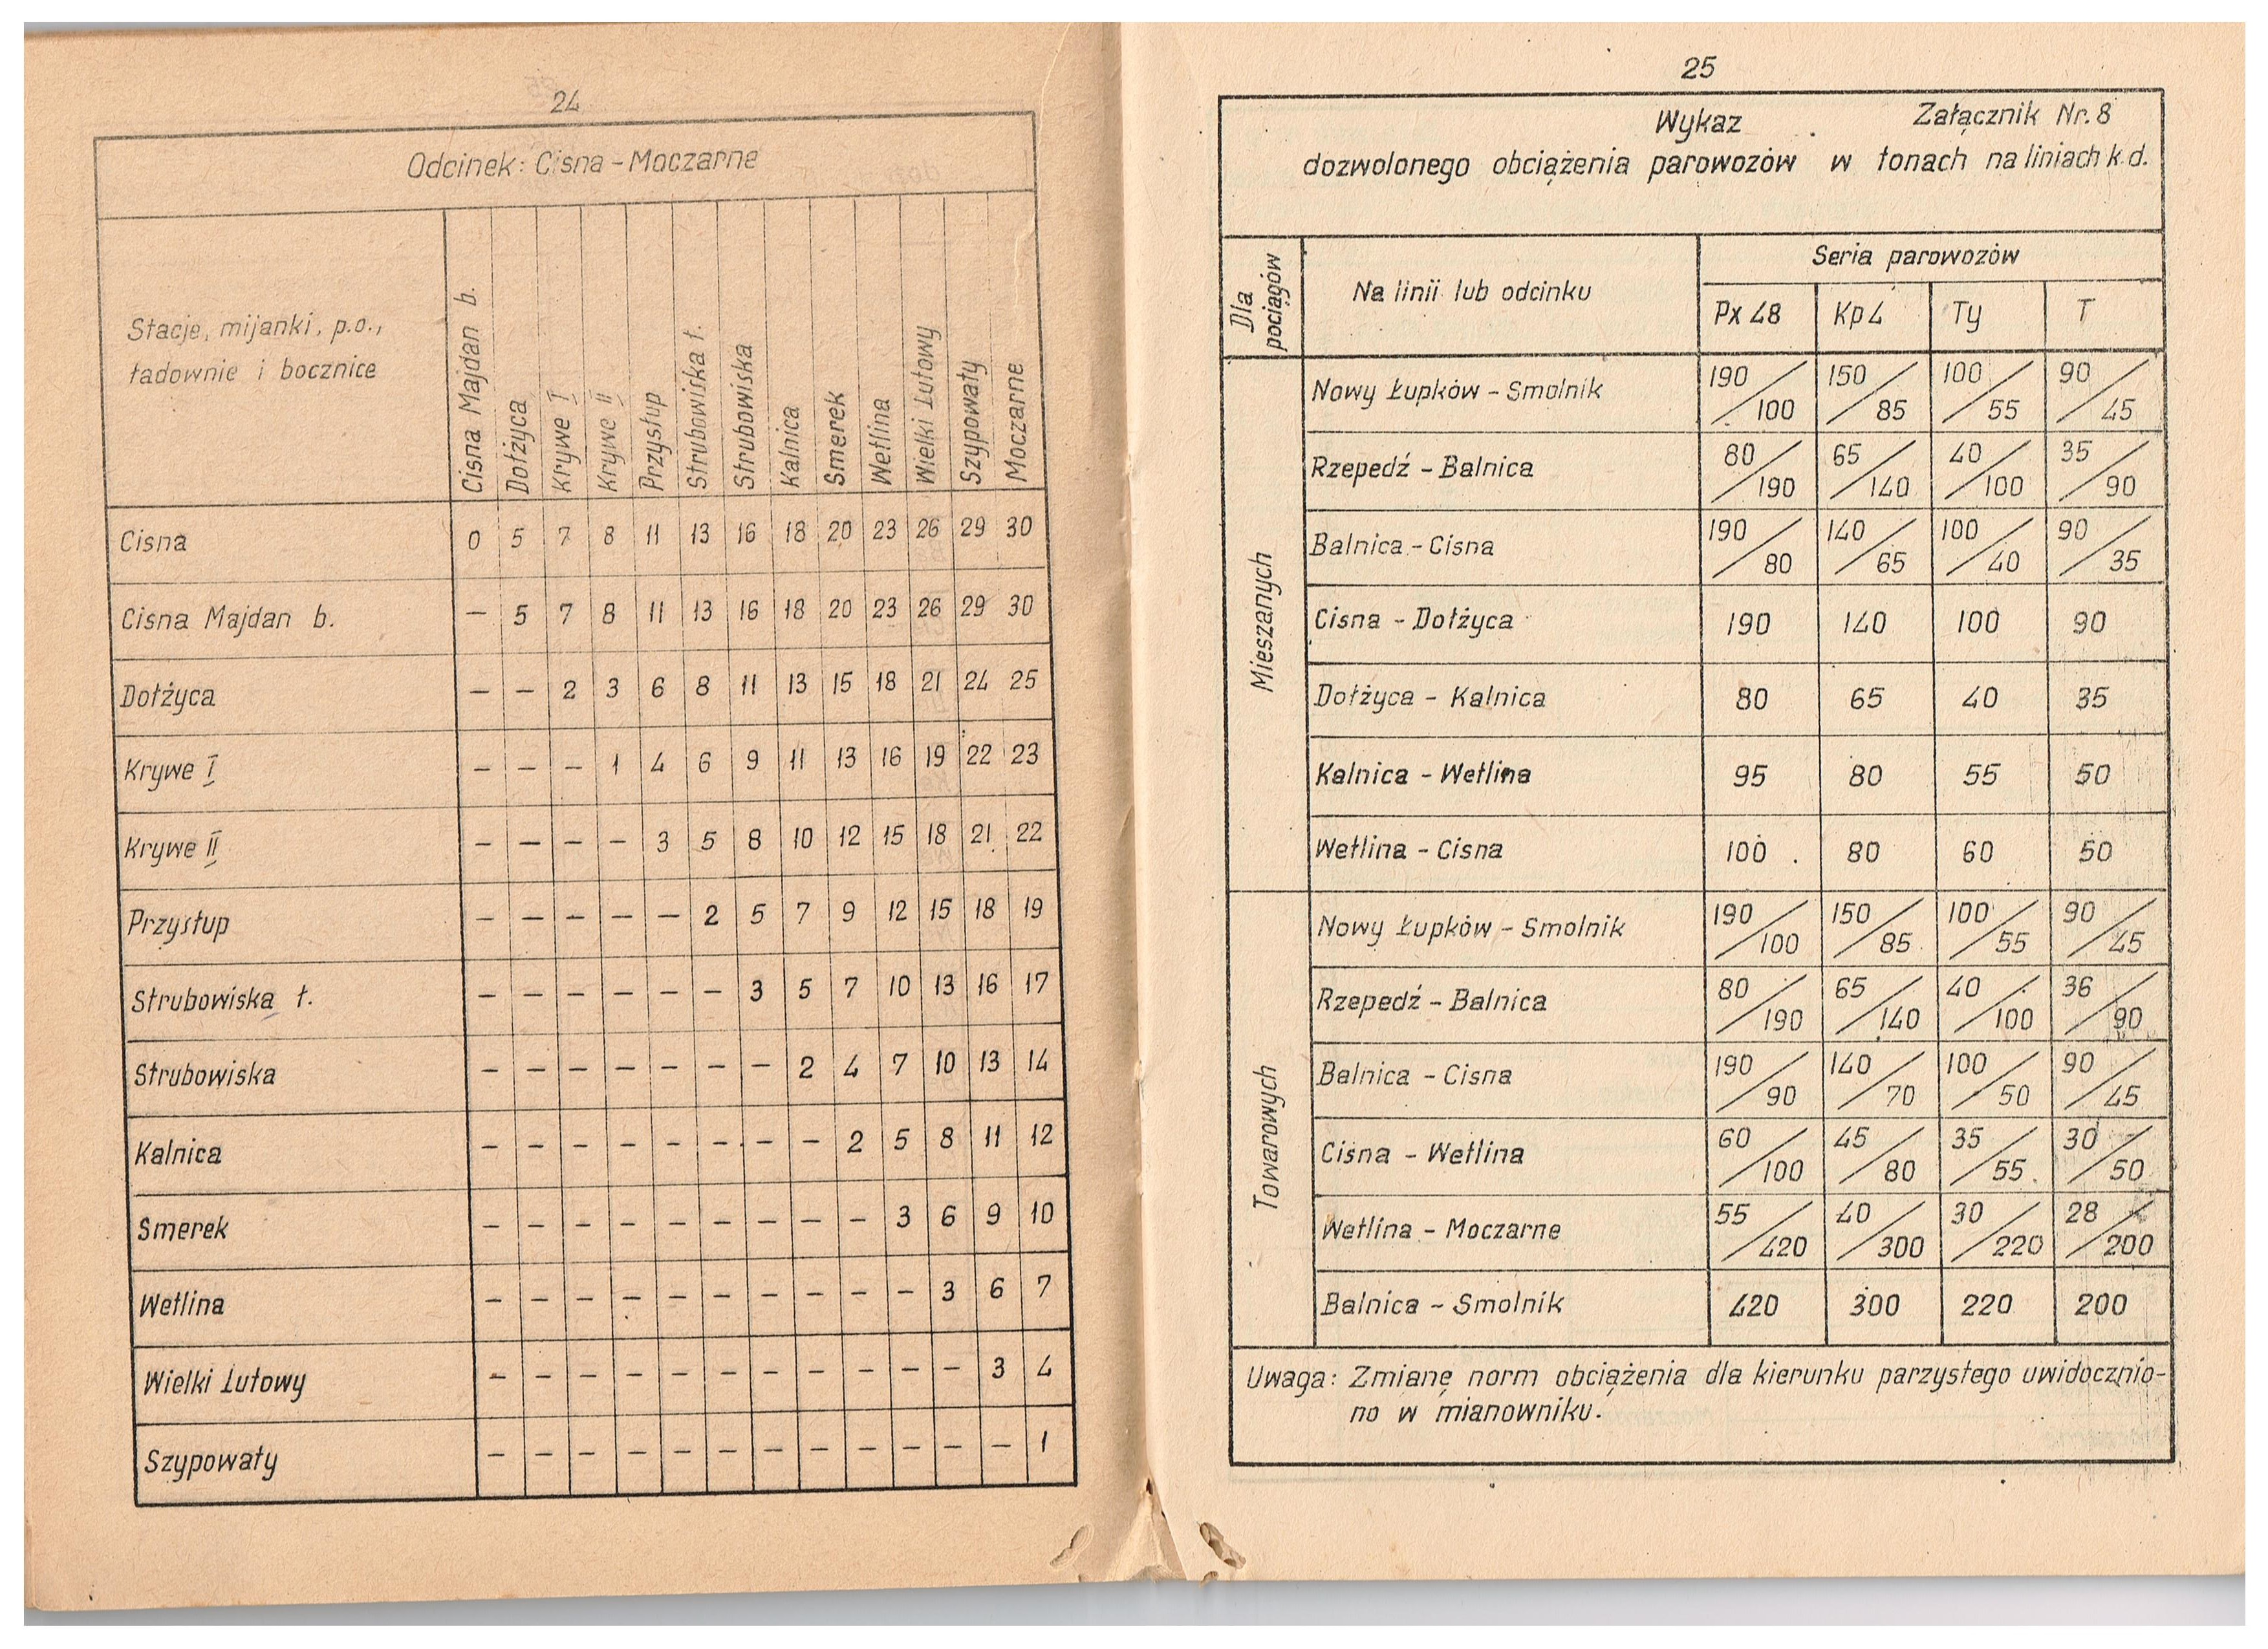 24
Odcinek: Cisna - Moczarne
Stacje, mijanki, p.o.,
ładownie i bocznice
Cisna Majdan b.
Dołżyca
Krywe I
Krywe II
Przysłup
Strubowiska ł.
Strubowiska
Kalnica
Smerek
Wetlina
Wielki Lutowy
Szypowaty
Moczarne
Cisna 0 5 7 8 11 13 16 18 20 23 26 29 30
Cisna Majdan b. — 5 7 8 11 13 16 18 20 23 26 29 30
Dołżyca — — 2 3 6 8 11 13 15 18 21 24 25
Krywe I — — — 1 4 6 9 11 13 16 19 22 23
Krywe II — — — — 3 5 8 10 12 15 18 21 22
Przysłup — — — — — 2 5 7 9 12 15 18 19
Strubowiska ł. — — — — — — 3 5 7 10 13 16 17
Strubowiska — — — — — — — 2 4 7 10 13 14
Kalnica — — — — — — — — 2 5 8 11 12
Smerek — — — — — — — — — 3 6 9 10
Wetlina — — — — — — — — — — 3 6 7
Wielki Lutowy — — — — — — — — — — — 3 4
Szypowaty — — — — — — — — — — — — 1
25
Wykaz Załącznik Nr. 8
dozwolonego obciążenia parowozów w tonach na liniach k.d.
Dla pociągów
Na linii lub odcinku
Seria parowozów
Px 48 Kp4 Ty T
Mieszanych
Nowy Łupków - Smolnik 190/100 150/85 100/55 90/45
Rzepedź - Balnica 80/190 65/140 40/100 35/90
Balnica - Cisna 190/80 140/65 100/40 90/35
Cisna - Dołżyca 190 140 100 90
Dołżyca - Kalnica 80 65 40 35
Kalnica - Wetlina 95 80 55 50
Wetlina - Cisna 100 80 60 50
Towarowych
Nowy Łupków - Smolnik 190/100 150/85 100/55 90/45
Rzepedź - Balnica 80/190 65/140 40/100 36/90
Balnica - Cisna 190/90 140/70 100/50 90/45
Cisna - Wetlina 60/100 45/80 35/55 30/50
Wetlina - Moczarne 55/420 40/300 30/220 28/200
Balnica - Smolnik 420 300 220 200
Uwaga: Zmianę norm obciążenia dla kierunku parzystego uwidocznio-
no w mianowniku.